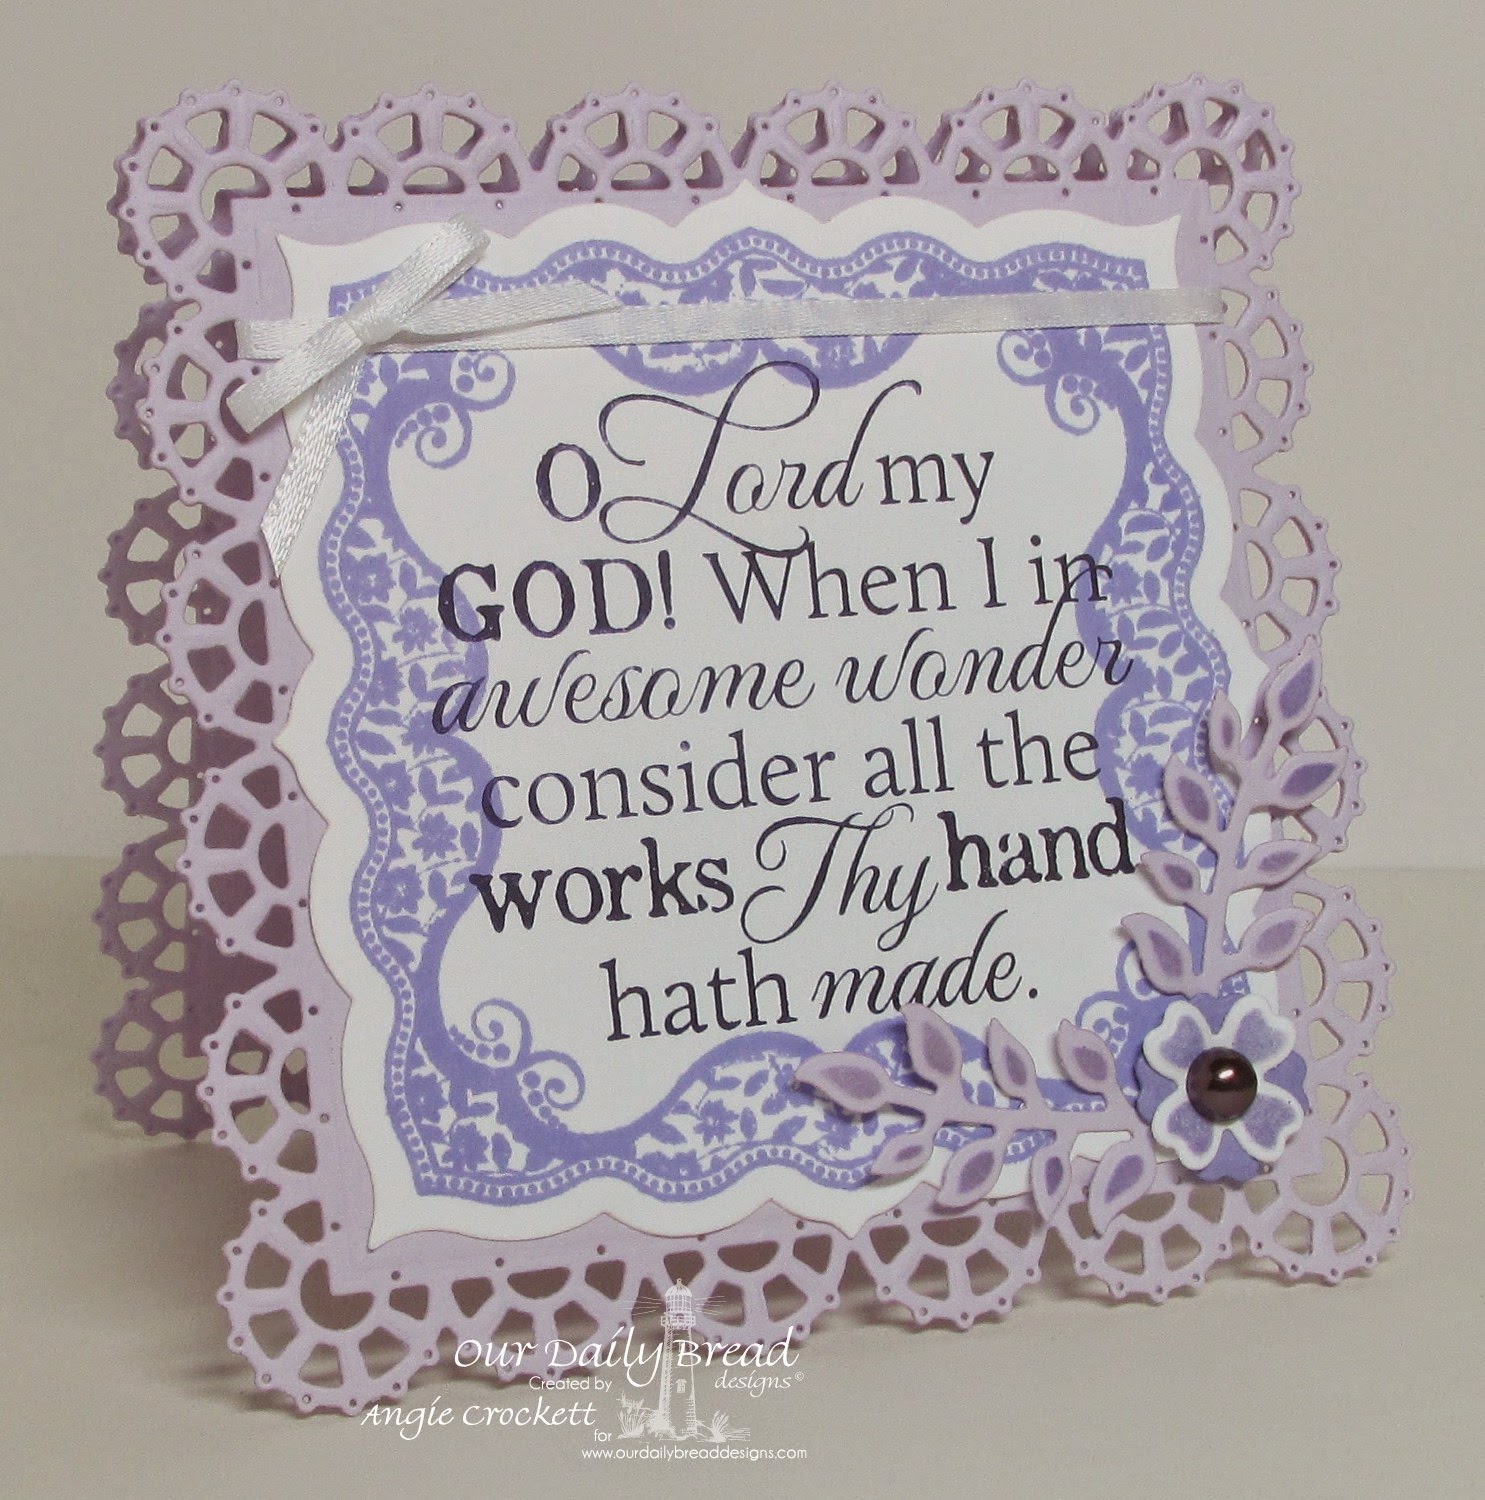 O Lord my
GOD! When I in
awesome wonder
consider all the
works Thy hand
hath made.
Our Daily Bread
designs©
Created by
Angie Crockett
for
www.ourdailybreaddesigns.com